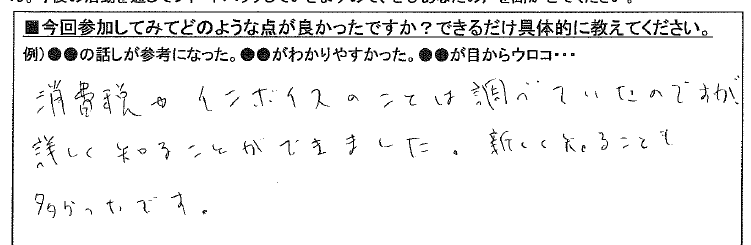 ■今回参加してみてどのような点が良かったですか？できるだけ具体的に教えてください。
例）●●の話しが参考になった。●●がわかりやすかった。●●が目からウロコ・・・
消費税やインボイスのことは調べていたのですが、
詳しく知ることができました。新しく知ることも
多かったです。